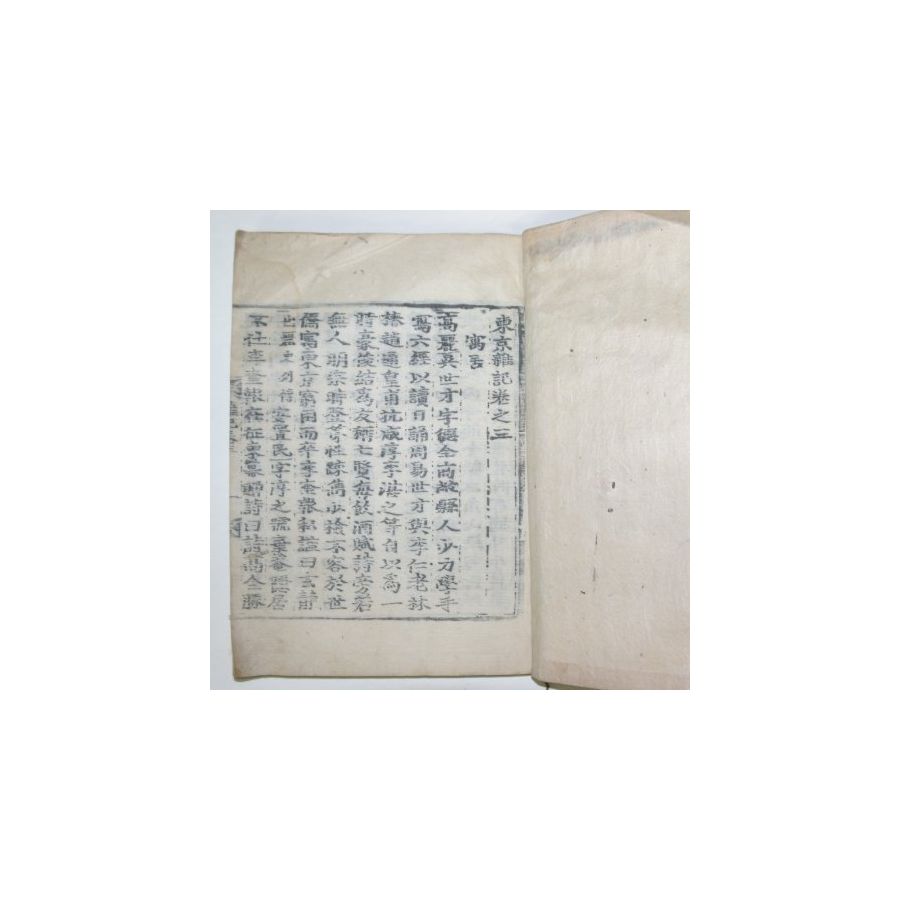 東京雜記卷之三
寓居
高麗吳世才字德全高敞縣人少力學手
寫六經以讀日誦周易世才與李仁老林
椿趙通皇甫抗咸淳李湛之等自以爲一
時豪俊結爲友稱七賢每飲酒賦詩旁若
無人明宗時登第性疎雋少檢不容於世
僑寓東京窮困而卒李奎報私謚曰玄靜
字淳之號棄菴居
李奎報在征東幕贈詩曰詩萬全勝